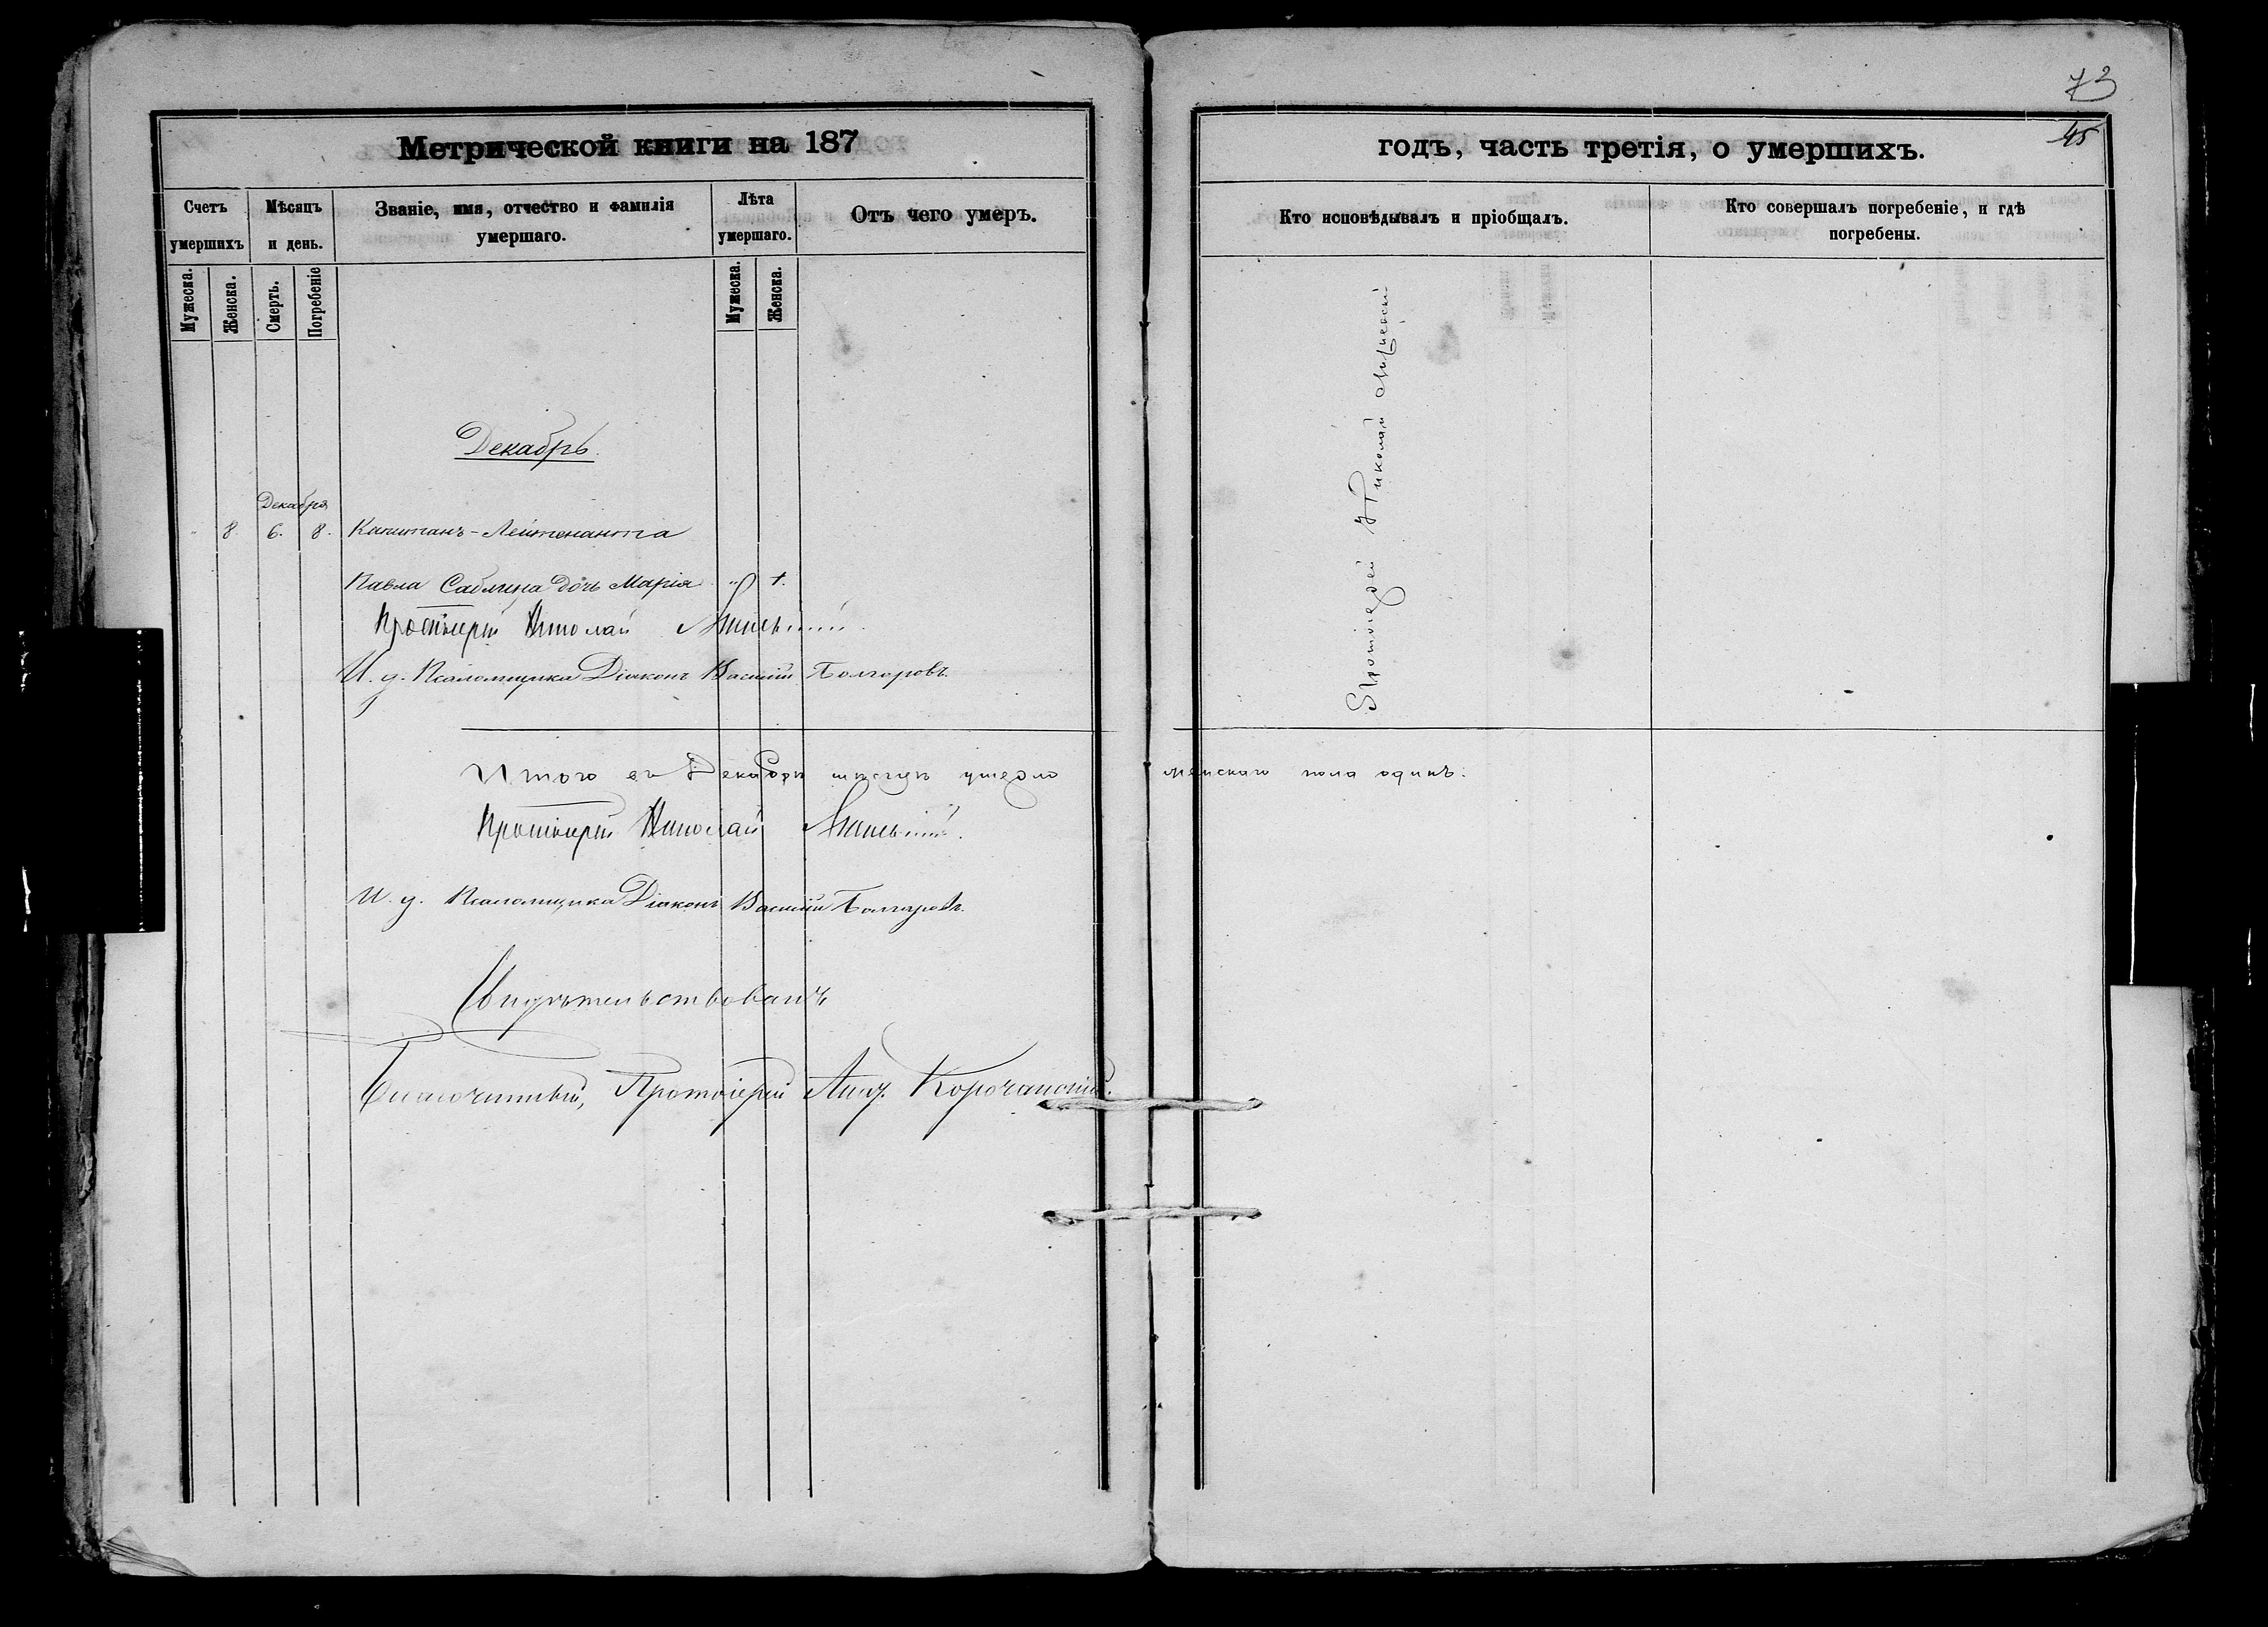 73
45
Метрической книги на 187
годъ, часть третія, о умершихъ.
Счетъ умершихъ
Мѣсяцъ и день.
Званіе, имя, отчество и фамилія умершаго.
Лѣта умершаго.
Отъ чего умеръ.
Кто исповѣдывалъ и пріобщалъ.
Кто совершалъ погребеніе, и гдѣ погребены.
Мужеска.
Женска.
Смерть.
Погребеніе
Мужеска.
Женска.
Декабрь.
Декабря
8. 6. 8. Капитанъ-Лейтенанта
Павла Саблина дочь Марія
Протоіерей Николай
И. д. Псаломщика Діаконъ Василій Болгаровъ.
Протоіерей Николай
Итого въ Декабрѣ мѣсяцѣ умерло женскаго пола одинъ.
Протоіерей Николай
И. д. Псаломщика Діаконъ Василій Болгаровъ.
Свидѣтельствовалъ
Благочинный, Протоіерей Корочанскій.